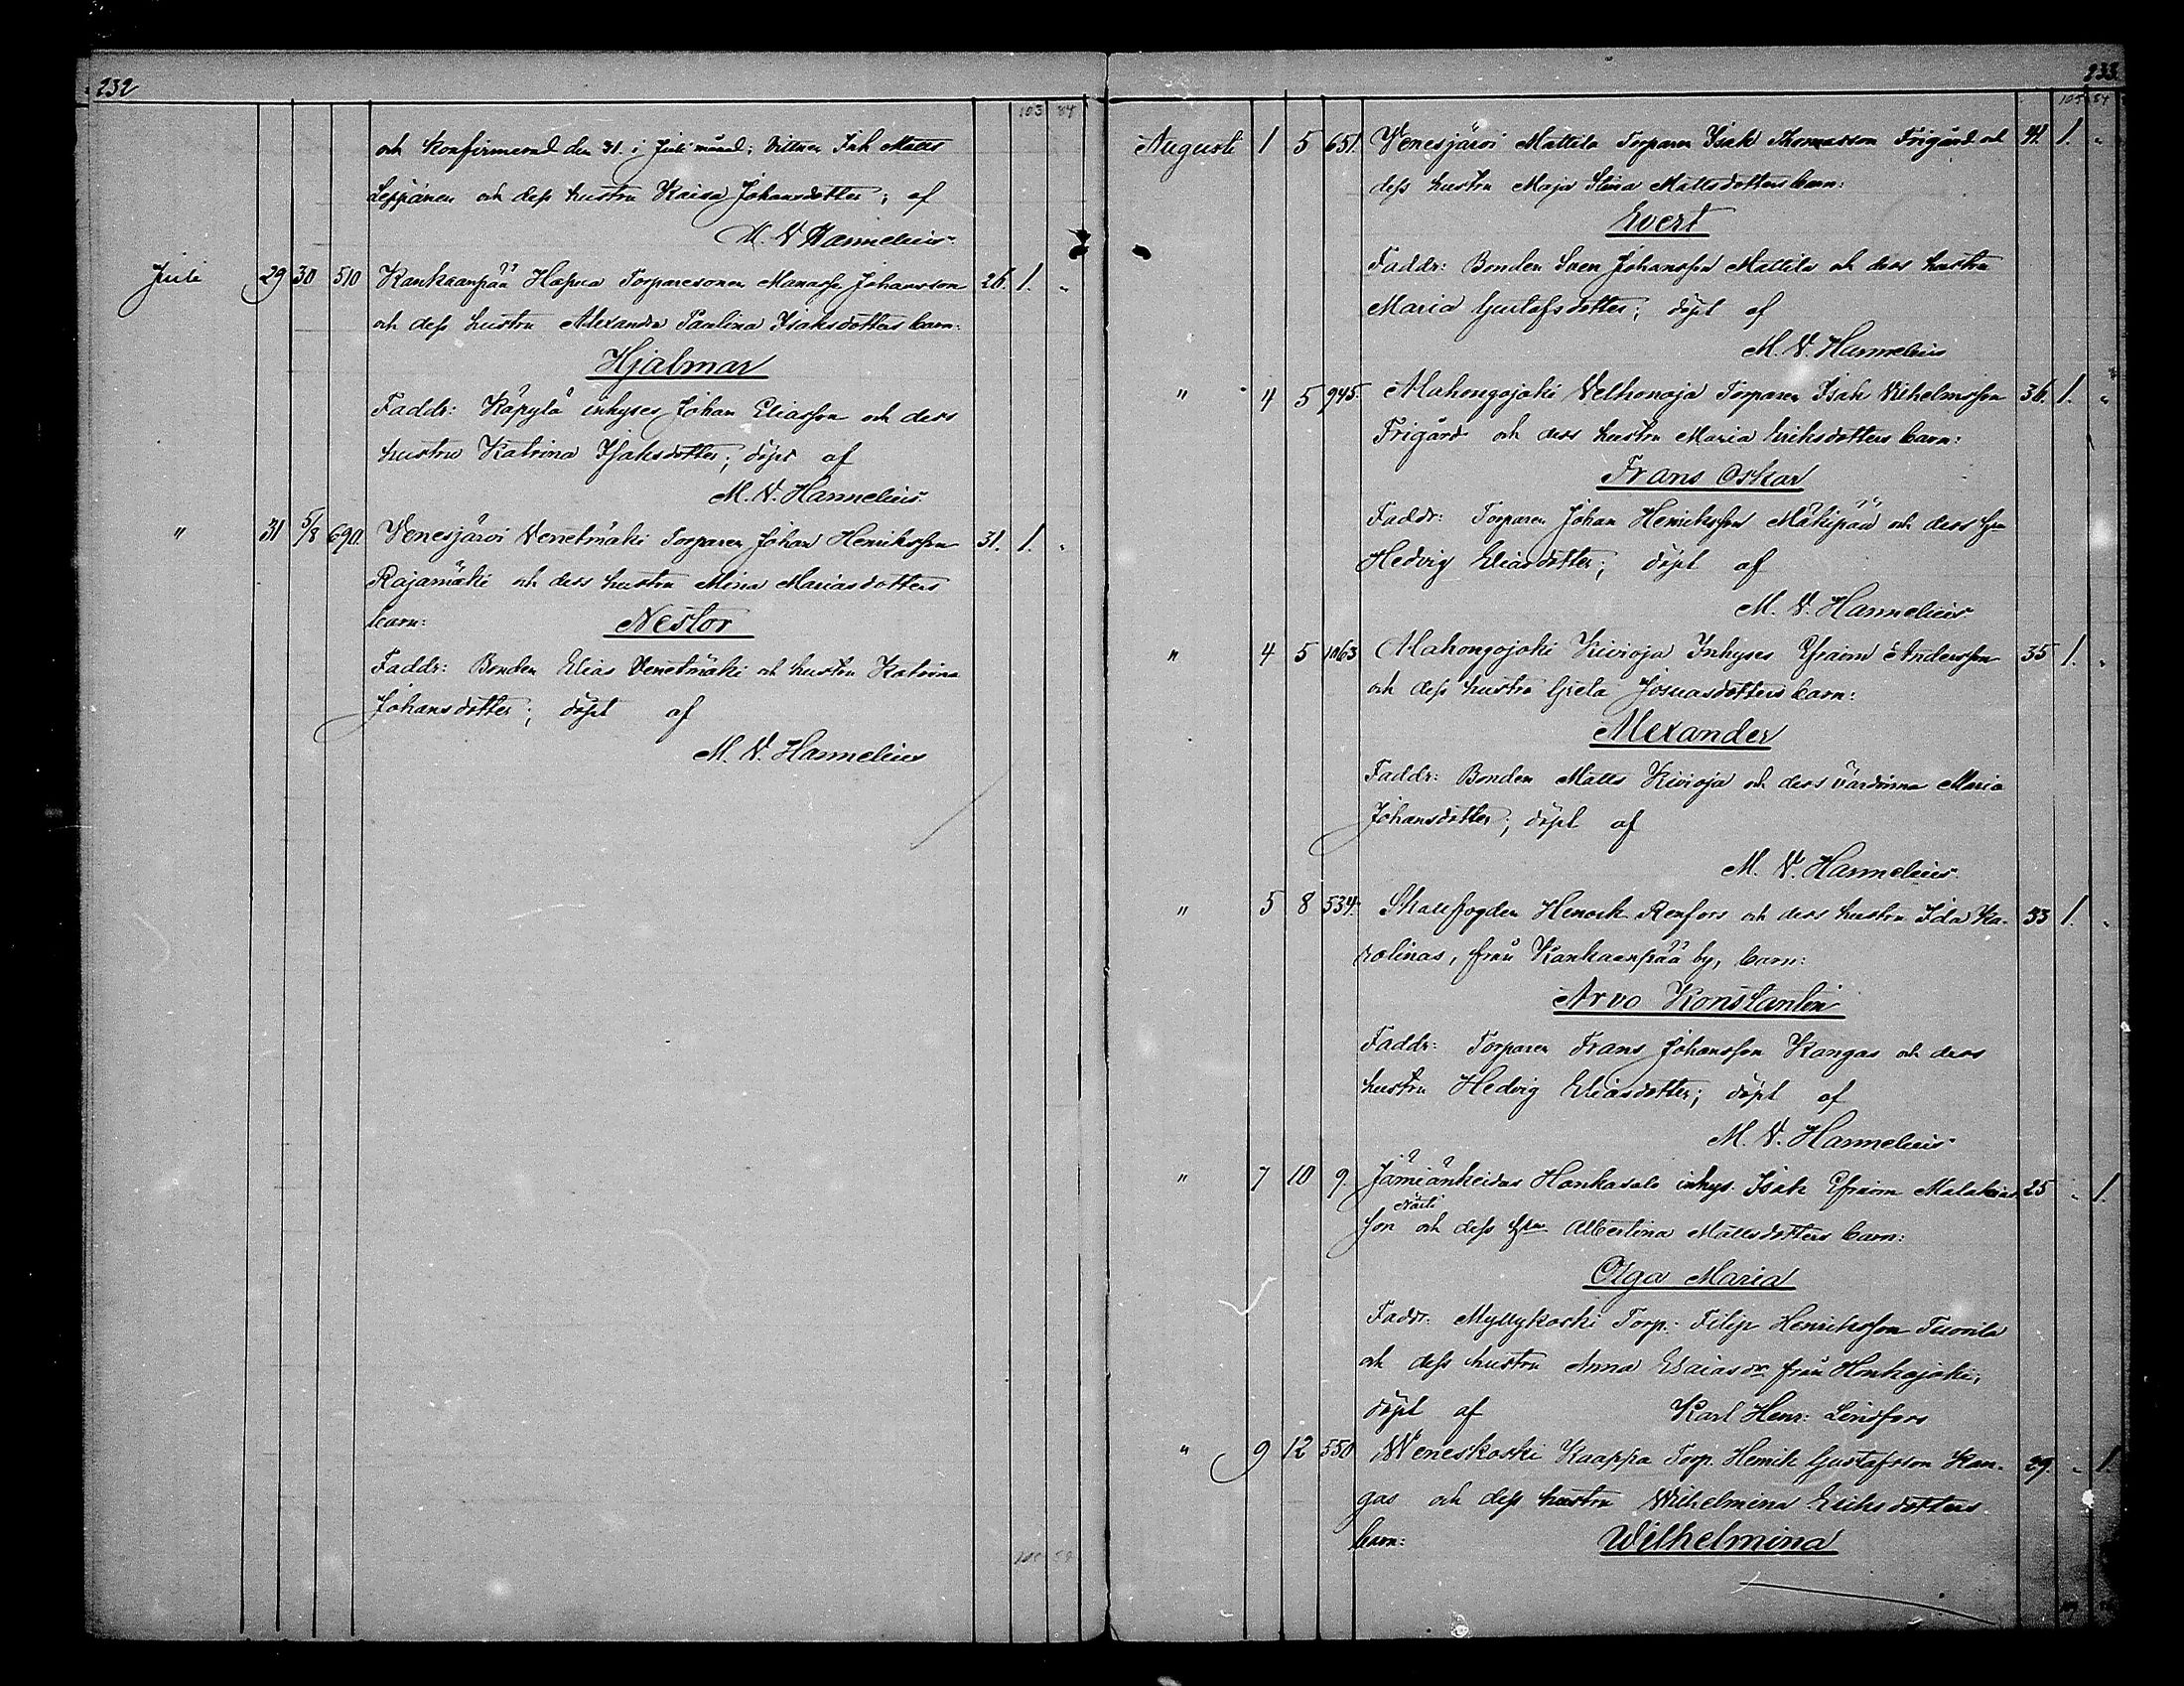 232
103 84
och konfirmerad den 31. i Juli månad; Vittnen Inh Matts
Leppänen och dess hustru Kaisa Johansdotter; af
M. V. Hannelius.
Juli 29 30 510 Kankaanpää Hapua Torparesonen Manasse Johansson 26. 1. "
och dess hustru Alexandra Paulina Isaksdotters barn:
Hjalmar
Faddr: Käpylä inhyses Johan Eliasson och dess
hustru Katrina Isaksdotter; döpt af
M. V. Hannelius.
" 31 5/8 690. Venesjärvi Venetmäki Torparen Johan Henriksson 31. 1. "
Rajamäki och dess hustru Mina Mariasdotters
barn: Nestor
Faddr: Bonden Elias Venetmäki och hustru Katrina
Johansdotter; döpt af
M. V. Hannelius
233
105 84
Augusti 1 5 651. Venesjärvi Mattila Torparen Isak Thomasson Frigård och 41. 1. "
dess hustru Maja Stina Mattsdotters barn:
Evert
Faddr: Bonden Sven Johansson Mattila och dess hustru
Maria Gustafsdotter; döpt af
M. V. Hannelius
" 4 5 945. Alahongojoki Velhonoja Torparen Isak Vilhelmsson 36. 1. "
Frigård och dess hustru Maria Eriksdotters barn:
Frans Oskar
Faddr: Torparen Johan Henriksson Mäkipää och dess hu
Hedvig Eliasdotter; döpt af
M. V. Hannelius.
" 4 5 1063 Alahongojoki Kivioja Inhyses Efraim Andersson 35 1. "
och dess hustru Greta Josuasdotters barn:
Alexander
Faddr: Bonden Matts Kivioja och dess värdinna Maria
Johansdotter; döpt af
M. V. Hannelius.
" 5 8 534. Skallfogden Henock Renfors och dess hustru Ida Ka- 33 1. "
rolinas, från Kankaanpää by, barn:
Arvo Konstantin
Faddr: Torparen Frans Johansson Kangas och dess
hustru Hedvig Eliasdotter; döpt af
M. V. Hannelius
" 7 10 9. Jämiänkeidas Honkasalo inhys. Isak Efraim Malakias 25 " 1.
son och dess hu Albertina Mattsdotters barn:
Olga Maria
Faddr. Myllykoski Torp: Filip Henriksson Tuorila
och dess hustru Anna Esaiasdr från Honkajoki;
döpt af Karl Henr: Lindfors
" 9 12 550 Weneskoski Kaappa Torp. Henrik Gustafsson Kan- 29. " 1.
gas och dess hustru Wilhelmina Eriksdotters
barn: Wilhelmina